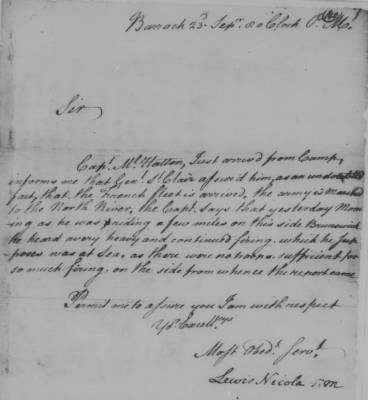 Barrack 23d. Sepr. 8 o Clock P. M.
Sir
Capt. McHatton, Just arrived from Camp,
informs me that Genl. St Clair assur'd him, as an undoubted
fact, that the French fleet is arrived, the army is Marched
to the North River, the Capt. says that yesterday Morn
ing as he was riding a few miles on this side Brunswick
he heard a very heavy and continued firing, which he sup
poses was at Sea, as there were no troops sufficient for
so much firing, on the side from whence the report came
Permit me to assure you I am with respect
Yr. Excellys
Most Obedt. Servt.
Lewis Nicola